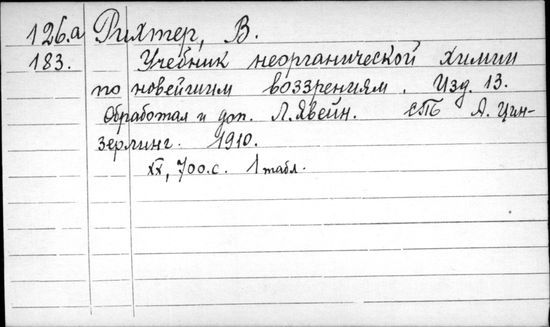 126.a Рихтер, В.
183. Учебник неорганической химии
по новейшим воззрениям. Изд. 13.
Обработал и доп. Л. Явейн. СПБ А. Цин-
зерлинг. 1910.
XX, 700.с. 1 табл.